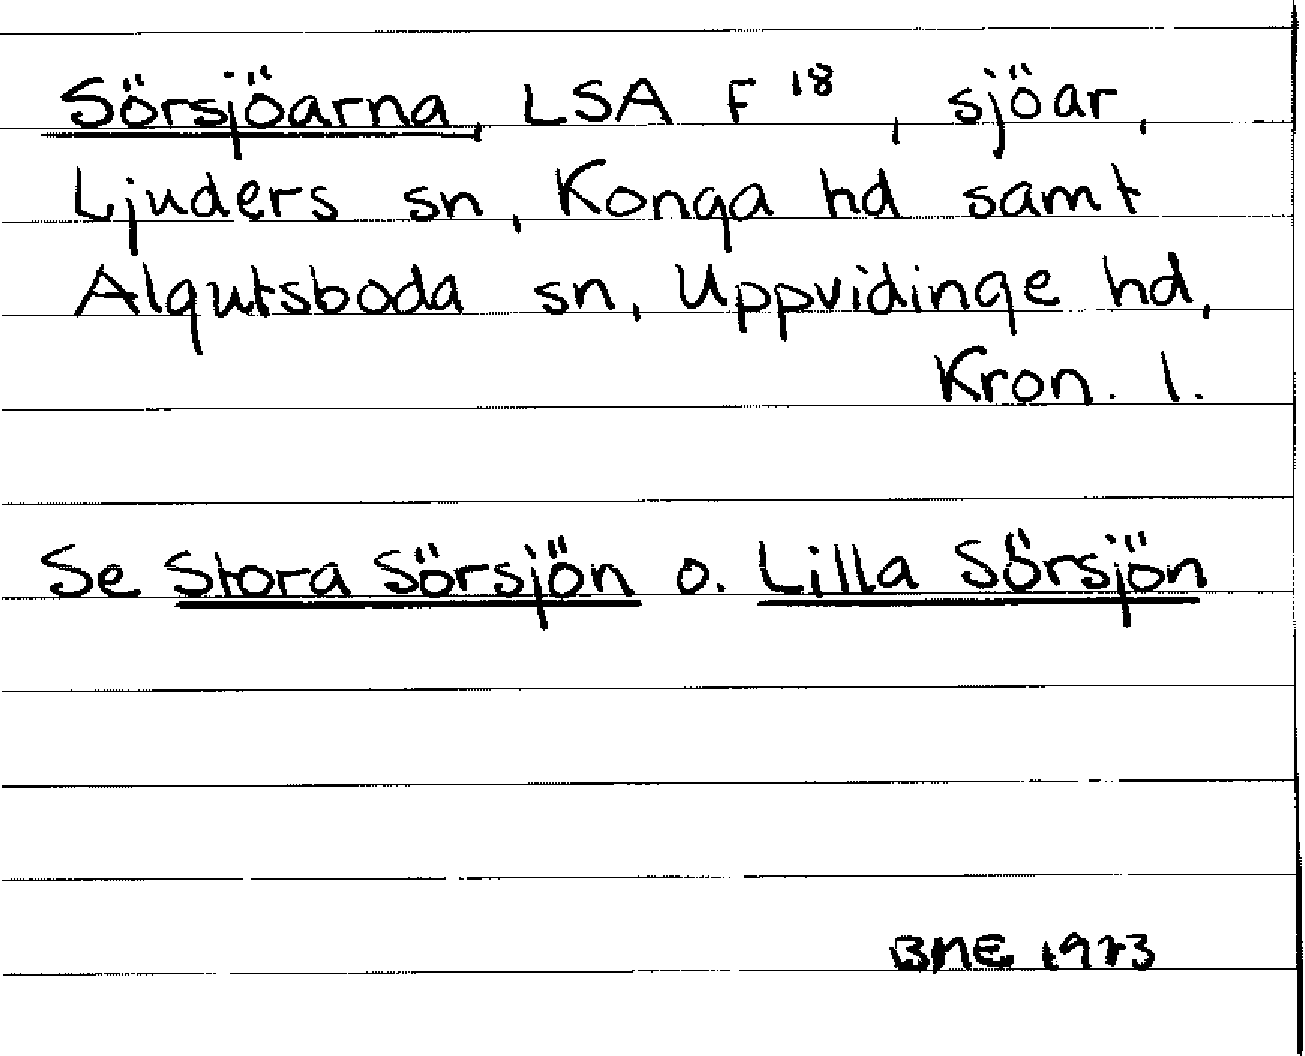 Sörsjöarna, LSA F 18, sjöar,
Ljuders sn, Konga hd samt
Algutsboda sn, Uppvidinge hd,
Kron. l.
Se Stora Sörsjön o. Lilla Sörsjön
BME 1973